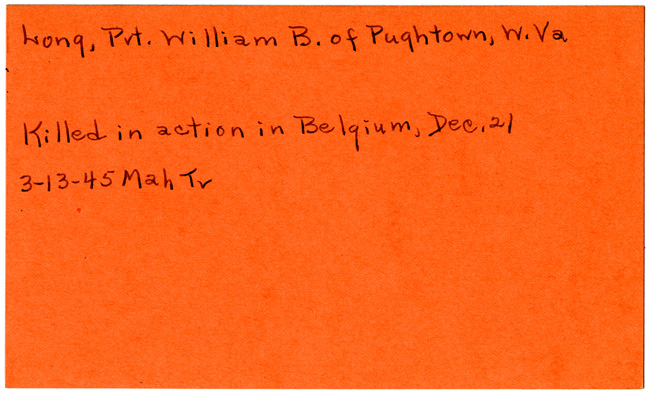 Long, Pvt. William B. of Pughtown, W.Va
Killed in action in Belgium, Dec. 21
3-13-45 Mah Tr